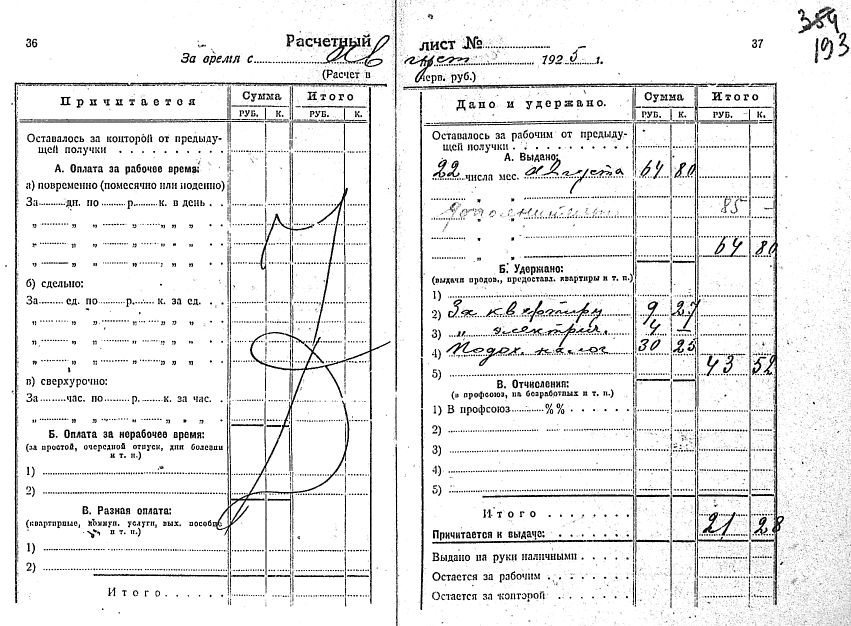 36
Расчетный
За время с
(Расчет в
Причитается
Сумма
Итого
РУБ. К. РУБ. К.
Оставалось за конторой от предыду-
щей получки . . . . . . . . . .
А. Оплата за рабочее время:
а) повременно (помесячно или поденно)
За......дн. по......р......к. в день . .
„ „ „ „ „ „
„ „ „ „ „ „
„ „ „ „ „ „
б) сдельно:
За......ед. по......р......к. за ед. . .
„ „ „ „ „ „
„ „ „ „ „ „
„ „ „ „ „ „
в) сверхурочно:
За......час. по......р......к. за час. .
„ „ „ „ „ „
Б. Оплата за нерабочее время:
(за простой, очередной отпуск, дни болезни
и т. п.)
1)
2)
В. Разная оплата:
(квартирные, коммун. услуги, вых. пособие
и т. п.)
1)
2)
Итого . . . . .
354
193
лист №
37
август 1925 г.
черв. руб.)
Дано и удержано.
Сумма
Итого
РУБ. К. РУБ. К.
Оставалось за рабочим от предыду-
щей получки . . . . . . . . . .
А. Выдано:
22 числа мес. августа 64 80
„ „
85 —
„ „
„ „ 64 80
Б. Удержано:
(выдачи продов., предоставл. квартиры и т. п.)
1)
2) За квартиру 9 27
3) „ электрич. 4 —
4) Подох. налог 30 25
5) 43 52
В. Отчисления:
(в профсоюз, на безработных и т. п.)
1) В профсоюз......%% . . . . . .
2)
3)
4)
5)
Итого . . . . . . .
Причитается к выдаче: 21 28
Выдано на руки наличными . . . . .
Остается за рабочим . . . . . . .
Остается за конторой . . . . . .